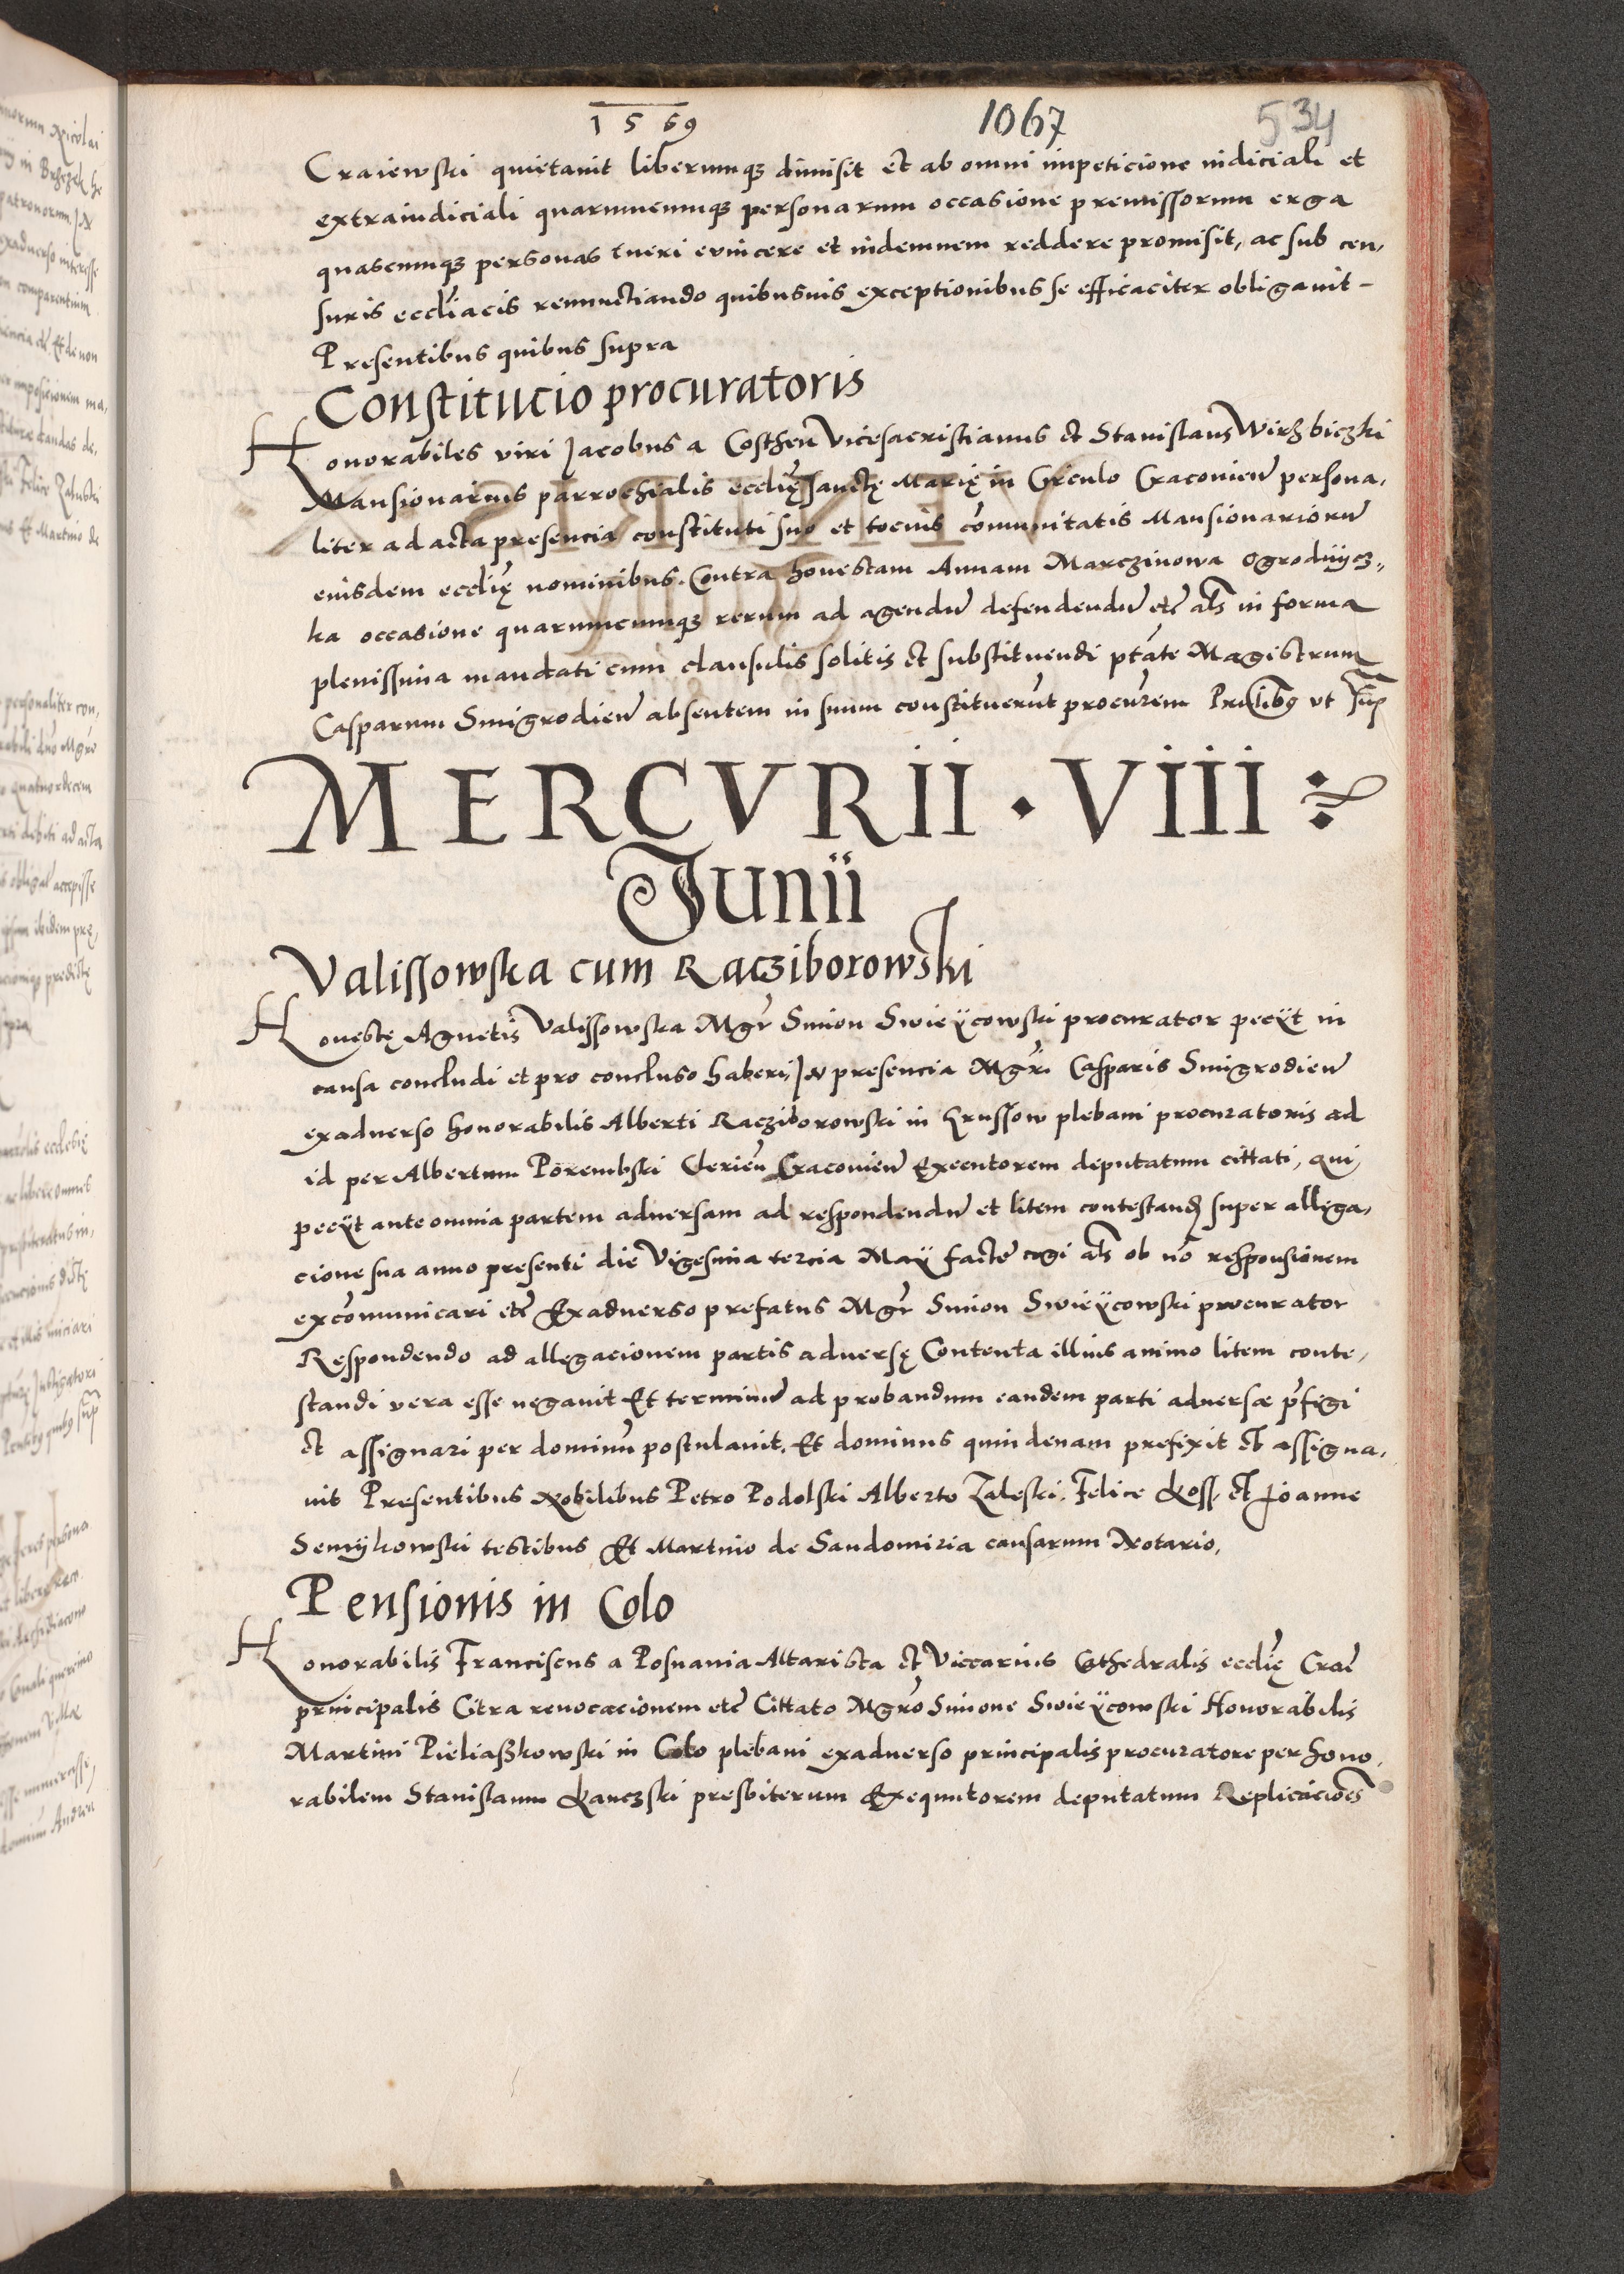 1569 1067 534
Craiewski quietavit liberumq3 dimisit et ab omni impeticione iudiciali et
extraiudiciali quarumcumq3 personarum occasione premissorum erga
quascumq3 personas tueri evincere et indemnem reddere promisit, ac sub cen,
suris eccliacis renunctiando quibusvis exceptionibus se efficaciter obligavit –
Presentibus quibus supra
Constitucio procuratoris
Honorabiles viri Jacobus a Costhen Vicesacristianus et Stanislaus Wirzbiczki
Mansionarius parrochialis ecclię sanctę Marię in Circulo Cracovien persona,
liter ad acta presencia constituti suo et tocius comunitatis Mansionarioru
eiusdem ecclię nominibus. Contra honestam Annam Marczinowa Ogrodniicz,,
ka occasione quarumcumq3 rerum ad agendu defendendu etc als in forma
plenissima mandati cum clausulis solitis et substituendi ptate Magistrum
Casparum Smigrodien absentem in suum constituerut procurem Prntibus ut sup
MERCVRII · VIII
Junii
Valissowska cum Racziborowski
Honestę Agnetis Valissowska Mgr Simon Swieÿcowski procurator pecÿt in
causa concludi et pro concluso haberi, In presencia Mgri Casparis Smigrodien
exadverso honorabilis Alberti Racziborowski in Krussow plebani procuratoris ad
id per Albertum Porembski Clericu Cracovien Executorem deputatum cittati, qui
pecÿt ante omnia partem adversam ad respondendu et litem contestand super allega,
cione sua anno presenti die Vigesima tercia Maÿ facte cogi als ob no responsionem
excomunicari etc Exadverso prefatus Mgr Simon Swieÿcowski procurator
Respondendo ad allegacionem partis adversę Contenta illius animo litem conte,
standi vera esse negavit Et terminu ad probandum eandem parti adversæ prfigi
et assignari per dominu postulavit. Et dominus quindenam prefixit et assigna,
vit Presentibus Nobilibus Petro Podolski Alberto Zaleski, Felice Koss et Joanne
Semÿkowski testibus Et Martino de Sandomiria causarum Notario,
Pensionis in Colo
Honorabilis Franciscus a Posnania Altarista et Viccarius Cathedralis ecclię Crac
principalis Citra revocacionem etc Cittato Mgro Simone Swieÿcowski Honorabilis
Martini Pieliaßkowski in Colo plebani exadverso principalis procuratore per hono,
rabilem Stanislaum Kanczski presbiterum Exequutorem deputatum Replicacioes